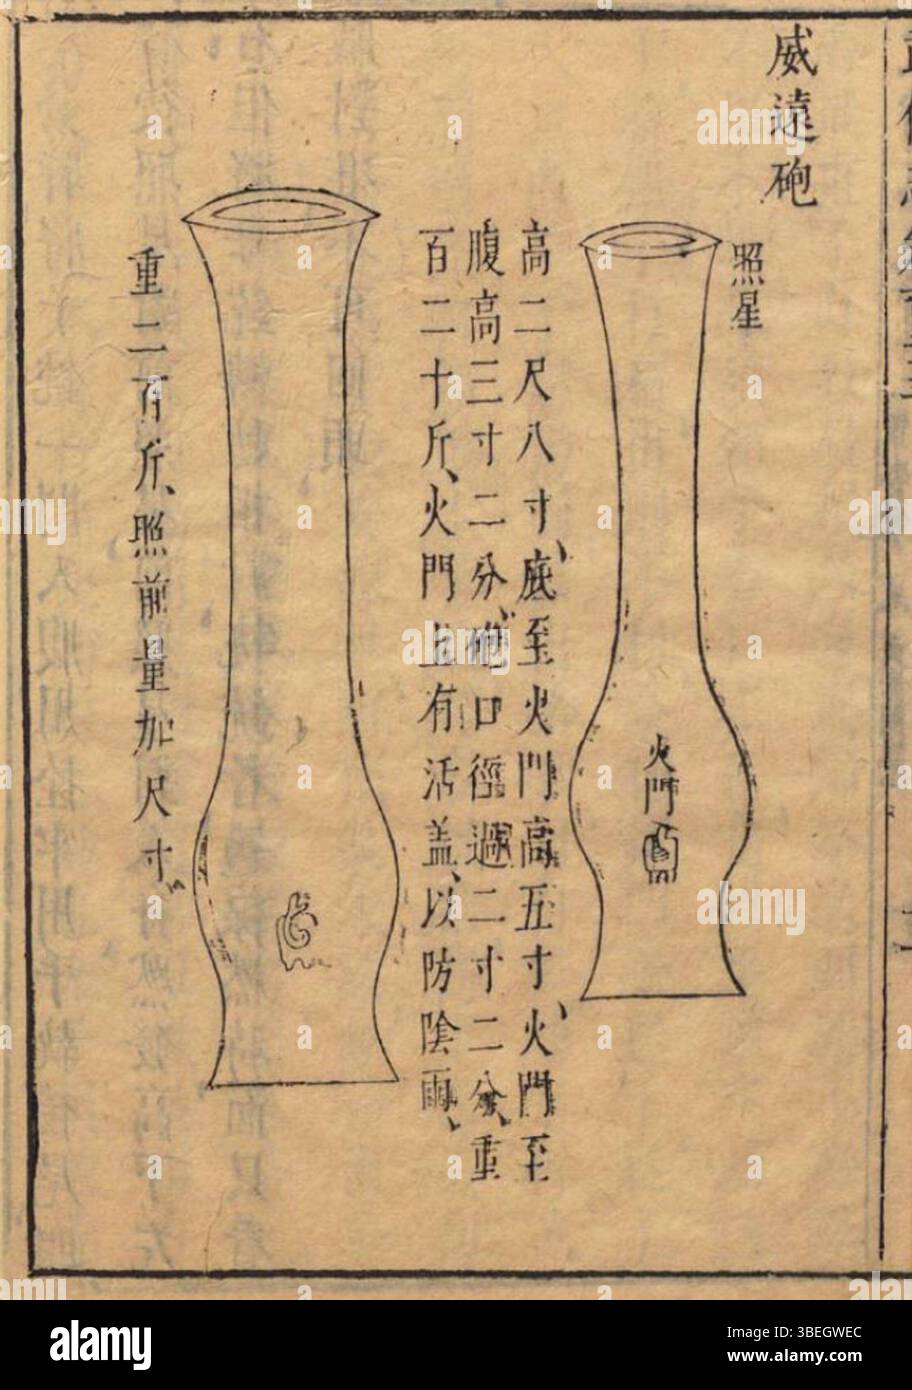 威遠砲
照星
火門
高二尺八寸、底至火門高五寸、火門至
腹高三寸二分、砲口徑過二寸二分、重
百二十斤、火門上有活盖、以防陰雨、
重二百斤、照前量加尺寸、
alamy
Image ID: 3BEGWEC
www.alamy.com